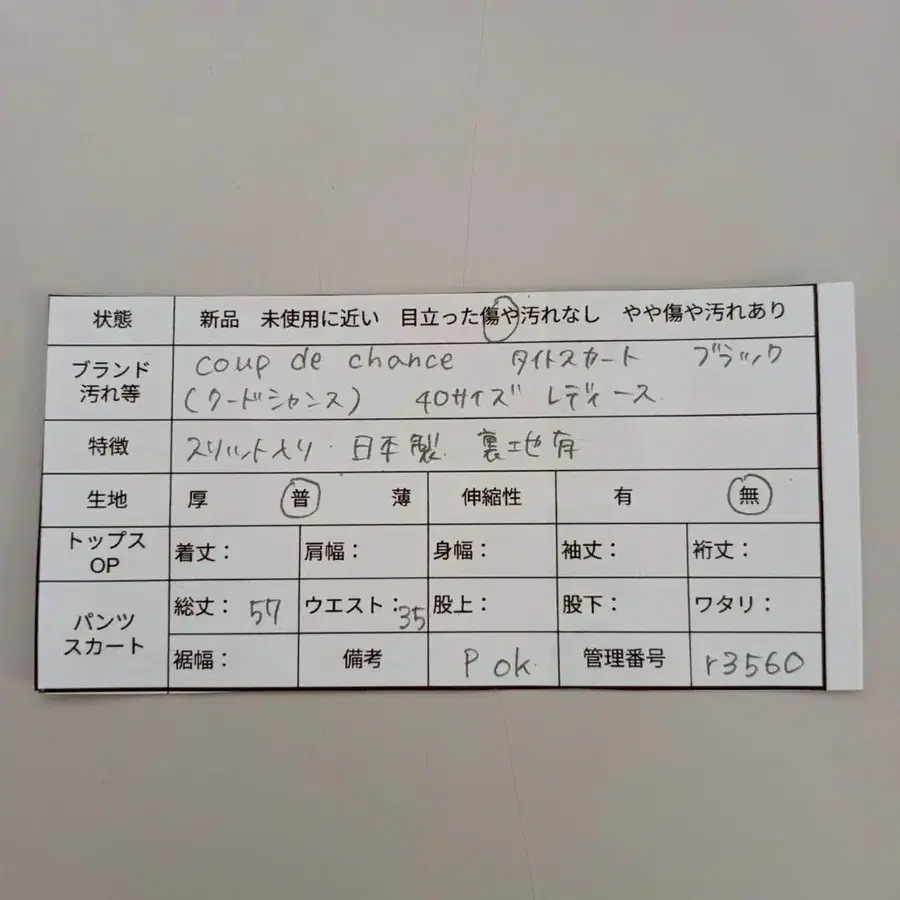 状態 新品 未使用に近い 目立った傷や汚れなし やや傷や汚れあり
ブランド 汚れ等 coup de chance タイトスカート ブラック
(クードシャンス) 40サイズ レディース
特徴 スリット入り・日本製 裏地有
生地 厚 普 薄 伸縮性 有 無
トップス OP 着丈: 肩幅: 身幅: 袖丈: 裄丈:
パンツ スカート 総丈: 57 ウエスト: 35 股上: 股下: ワタリ:
裾幅: 備考 P ok. 管理番号 r3560